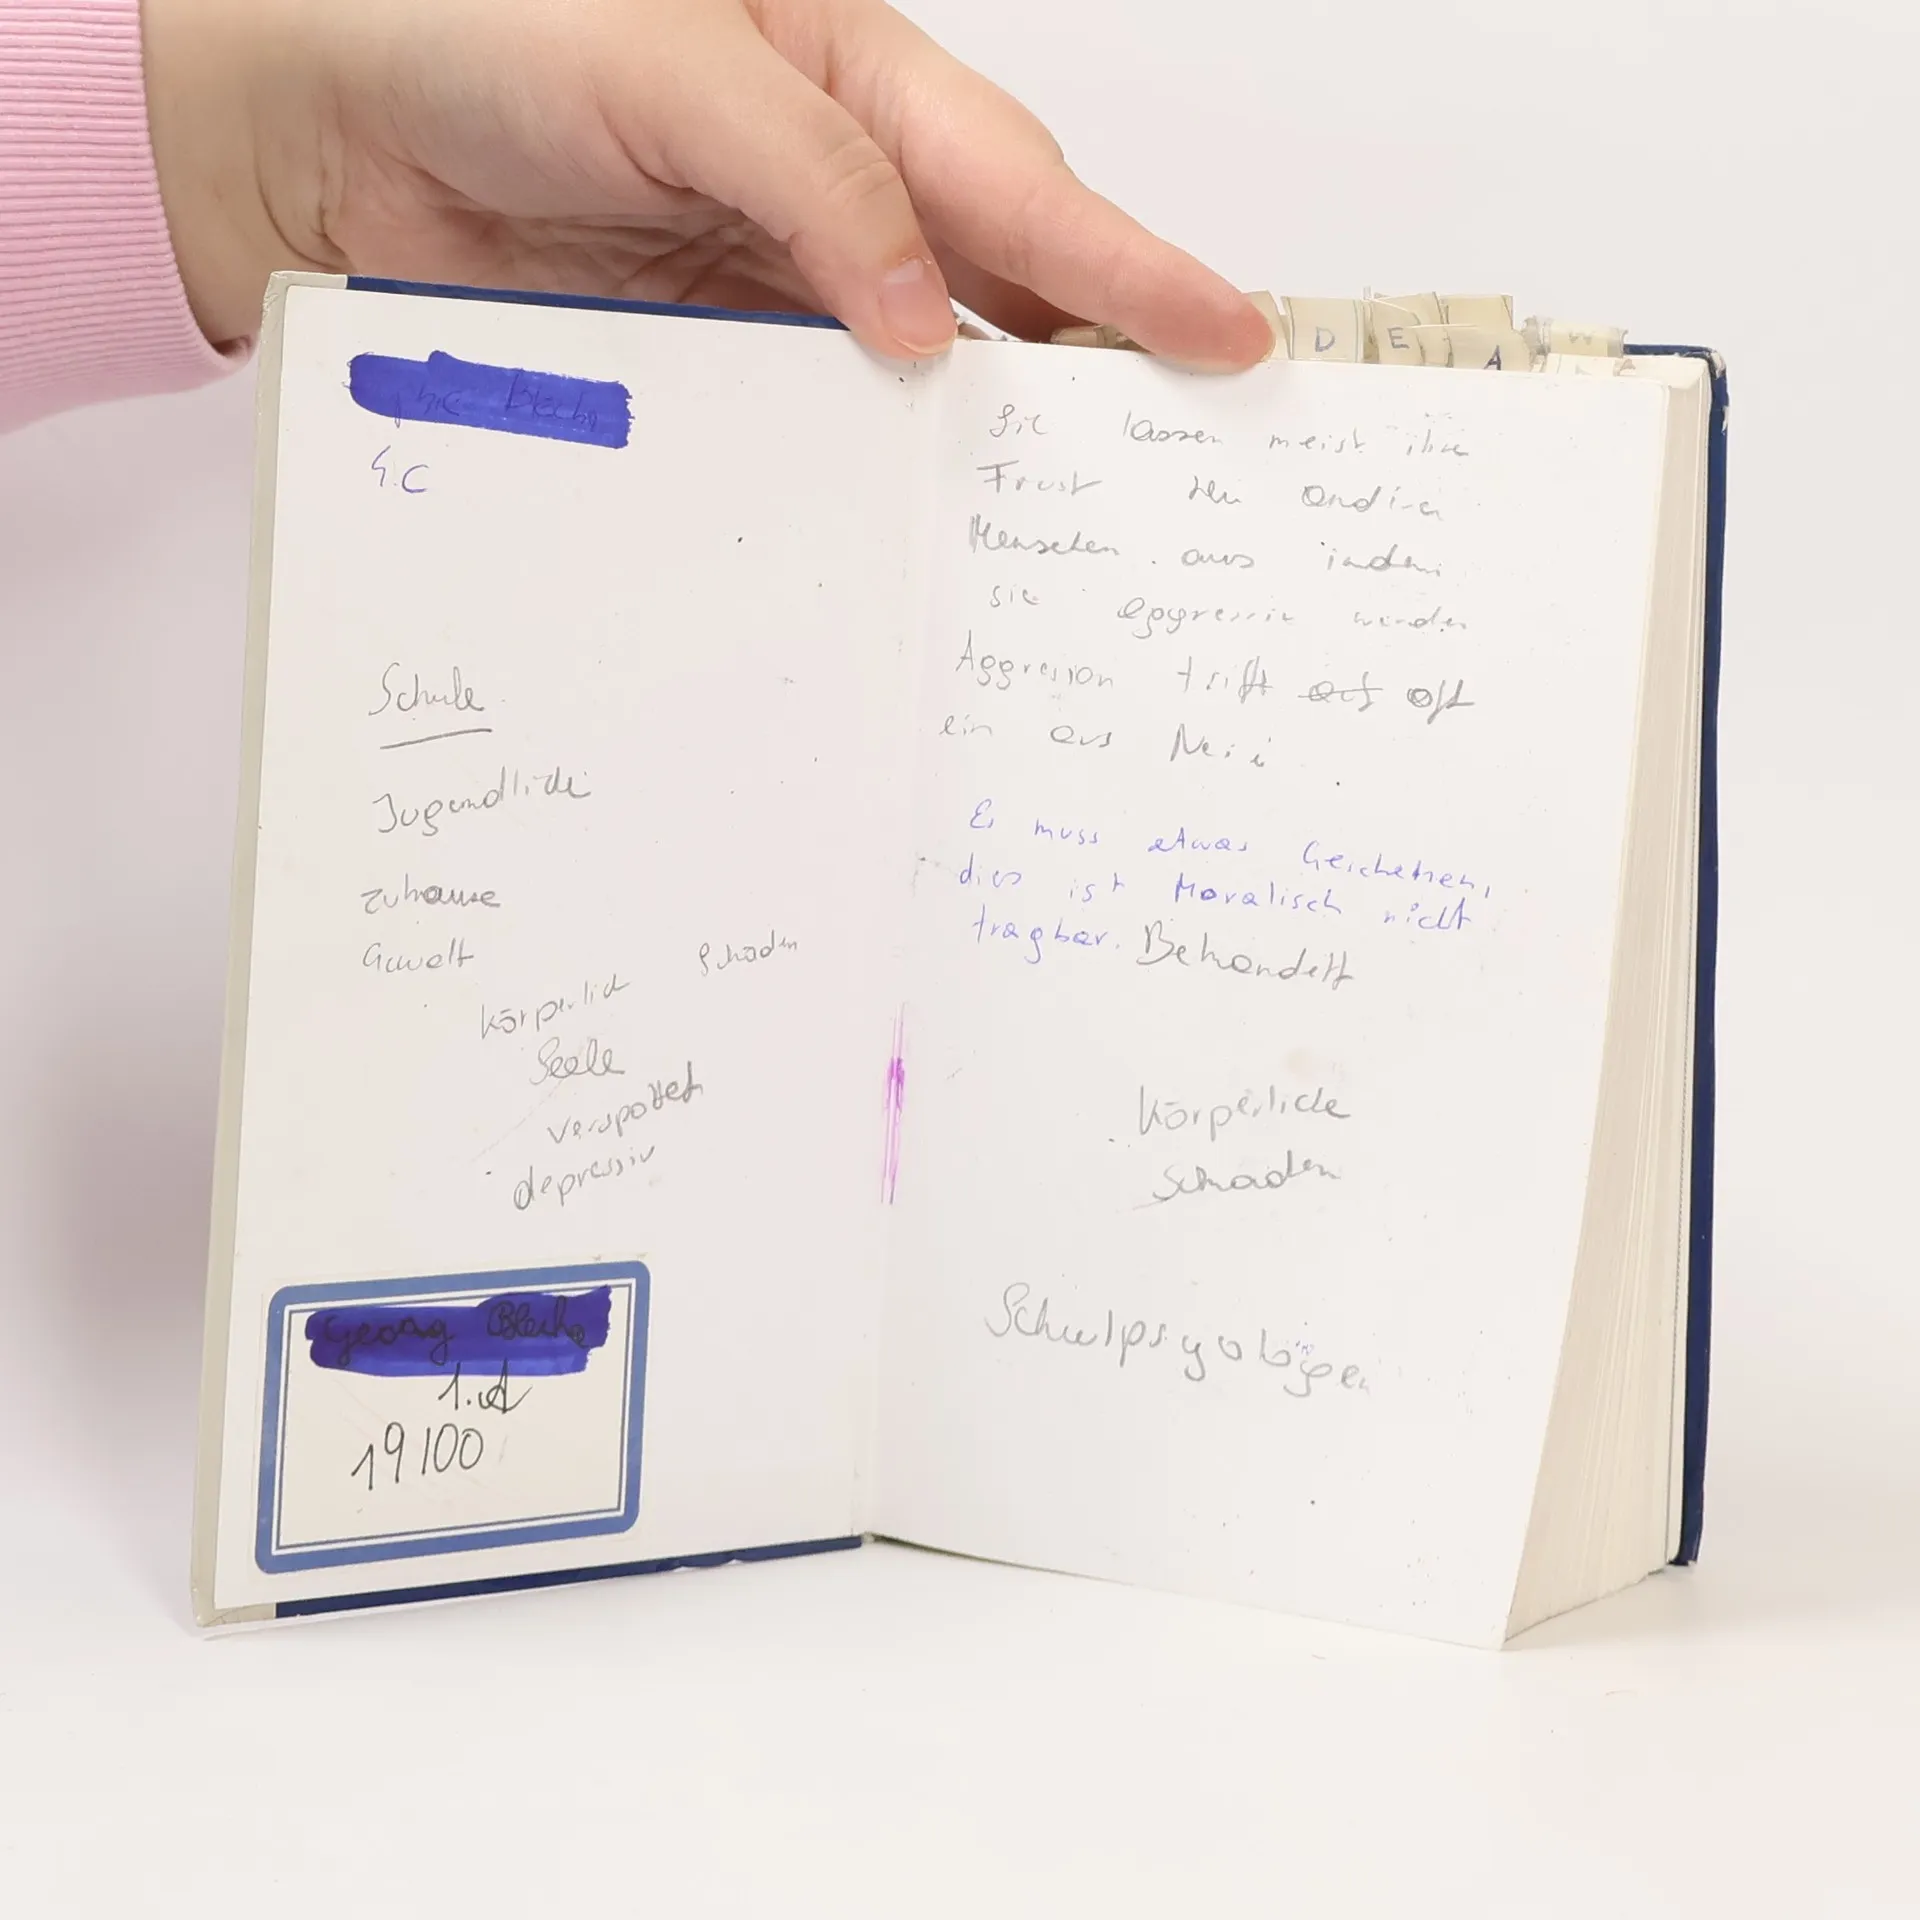 4.C
Schule
Jugendliche
zuhause
Gewalt
Schaden
körperlich
Seele
verspottet
depressiv
Georg
1.A
19/00
D E A W
Sie lassen meist ihre
Frust
Menschen aus indem
sie aggressiv werden
Aggresion trift auf oft
ein aus
Es muss etwas Geschehen,
dies ist Moralisch nicht
tragbar. Behandelt
Körperliche
Schaden
Schulpsyologen